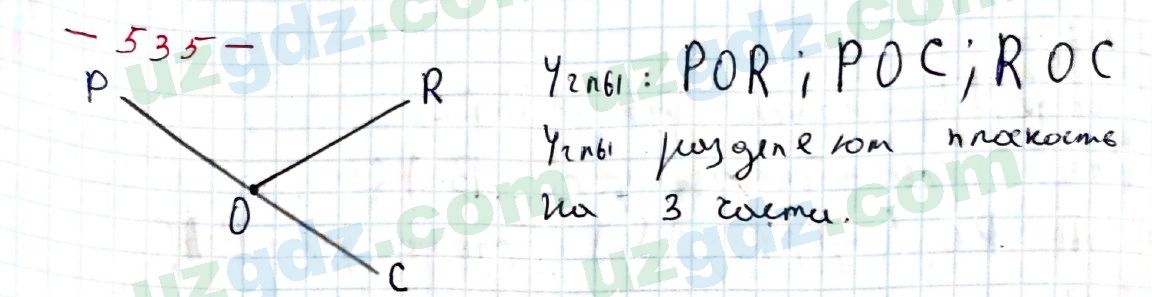 - 535 -
P
R
O
C
Углы: POR; POC; ROC
Углы разделяют плоскость
на 3 части.
uzgdz.com
uzgdz.com
uzgdz.com
uzgdz.com
uzgdz.com